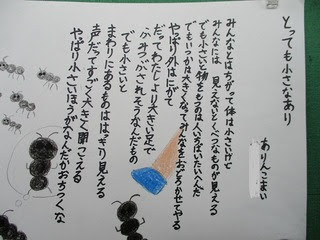 とっても小さなあり
ありんこまい
みんなとはちがって体は小さいけど
みんなには見えないとくべつなものが見える
でも小さいと物をもつのは人いちばいたいへんだ
でもいつかは大きくなってみんなをおどろかせてやる
やっぱり外はにがて
だってわたしより大きい足で
ふみつぶされそうなんだもの
でも小さいと
まわりにあるものははっきり見える
声だってすごく大きく聞こえる
やっぱり小さいほうがなんだかおちつくな